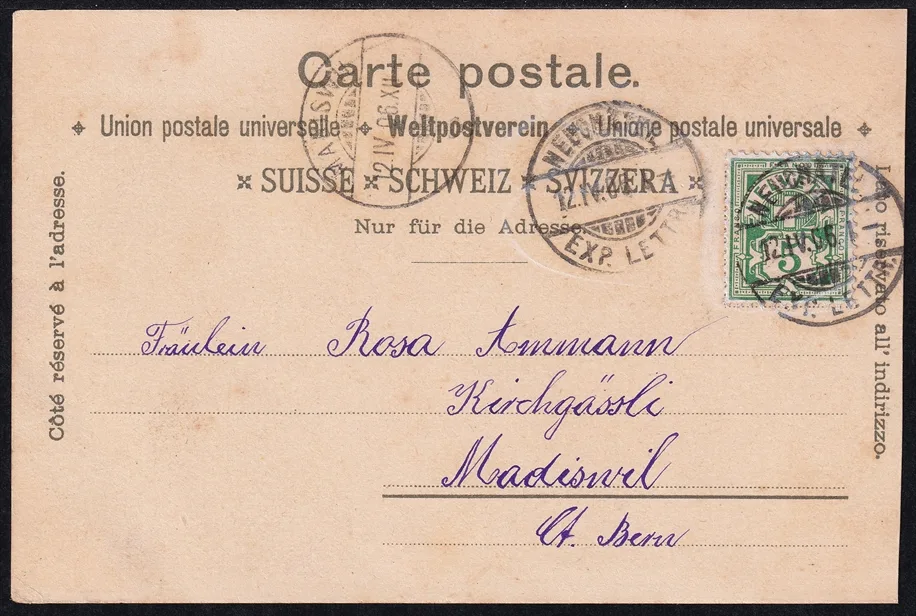 Carte postale.
Union postale universelle Weltpostverein Unione postale universale
SUISSE SCHWEIZ SVIZZERA
Nur für die Adresse.
Côté réservé à l'adresse.
Lato riservato all' indirizzo.
MADISWIL
12.IV.06.XII
NEUCHÂTEL
12.IV.06
EXP. LETTR.
FRANCO
5
NEUCHÂTEL
12.IV.06
EXP. LETTR.
Fräulein Rosa Ammann
Kirchgässli
Madiswil
Ct. Bern